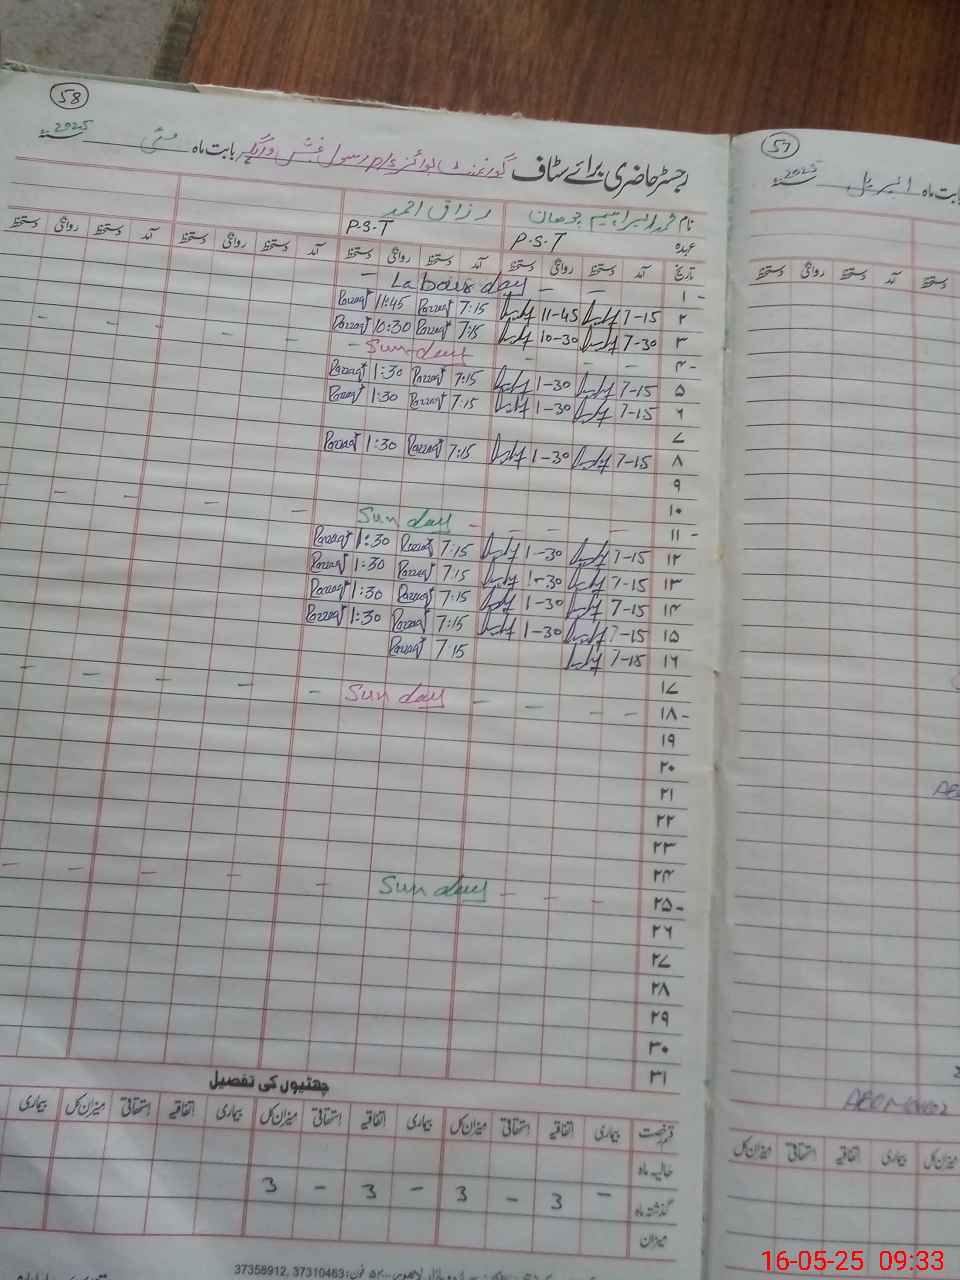 58
57
2025
رجسٹر حاضری برائے سٹاف گورنمنٹ بوائز بابت ماہ مئی ۲۰۲۵ سنہ
بابت ماہ اپریل 2025 سنہ
نام محمد ابراہیم رزاق احمد
عہدہ P.S.T P.S.T
تاریخ آمد دستخط روانگی دستخط آمد دستخط روانگی دستخط آمد دستخط روانگی دستخط آمد دستخط روانگی دستخط
۱ - Labour day
۲ 7-15 11-45 7:15 Razzaq 11:45 Razzaq
۳ 7-30 10-30 7:15 Razzaq 10:30 Razzaq
۴ - Sunday
۵ 7-15 1-30 7:15 Razzaq 1:30 Razzaq
۶ 7-15 1-30 7:15 Razzaq 1:30 Razzaq
۷
۸ 7-15 1-30 7:15 Razzaq 1:30 Razzaq
۹
۱۰
۱۱ - Sunday
۱۲ 7-15 1-30 7:15 Razzaq 1:30 Razzaq
۱۳ 7-15 1-30 7:15 Razzaq 1:30 Razzaq
۱۴ 7-15 1-30 7:15 Razzaq 1:30 Razzaq
۱۵ 7-15 1-30 7:15 Razzaq 1:30 Razzaq
۱۶ 7-15 7:15 Razzaq
۱۷
۱۸ - Sunday
۱۹
۲۰
۲۱
۲۲
۲۳
۲۴
۲۵ - Sunday
۲۶
۲۷
۲۸
۲۹
۳۰
۳۱
چھٹیوں کی تفصیل
قسم رخصت بیماری اتفاقیہ استحقاقی میزان کل بیماری اتفاقیہ استحقاقی میزان کل بیماری اتفاقیہ استحقاقی میزان کل بیماری
حالیہ ماہ
گذشتہ ماہ - 3 - 3 - 3 - 3
میزان
فون: 37310463, 37358912
16-05-25 09:33